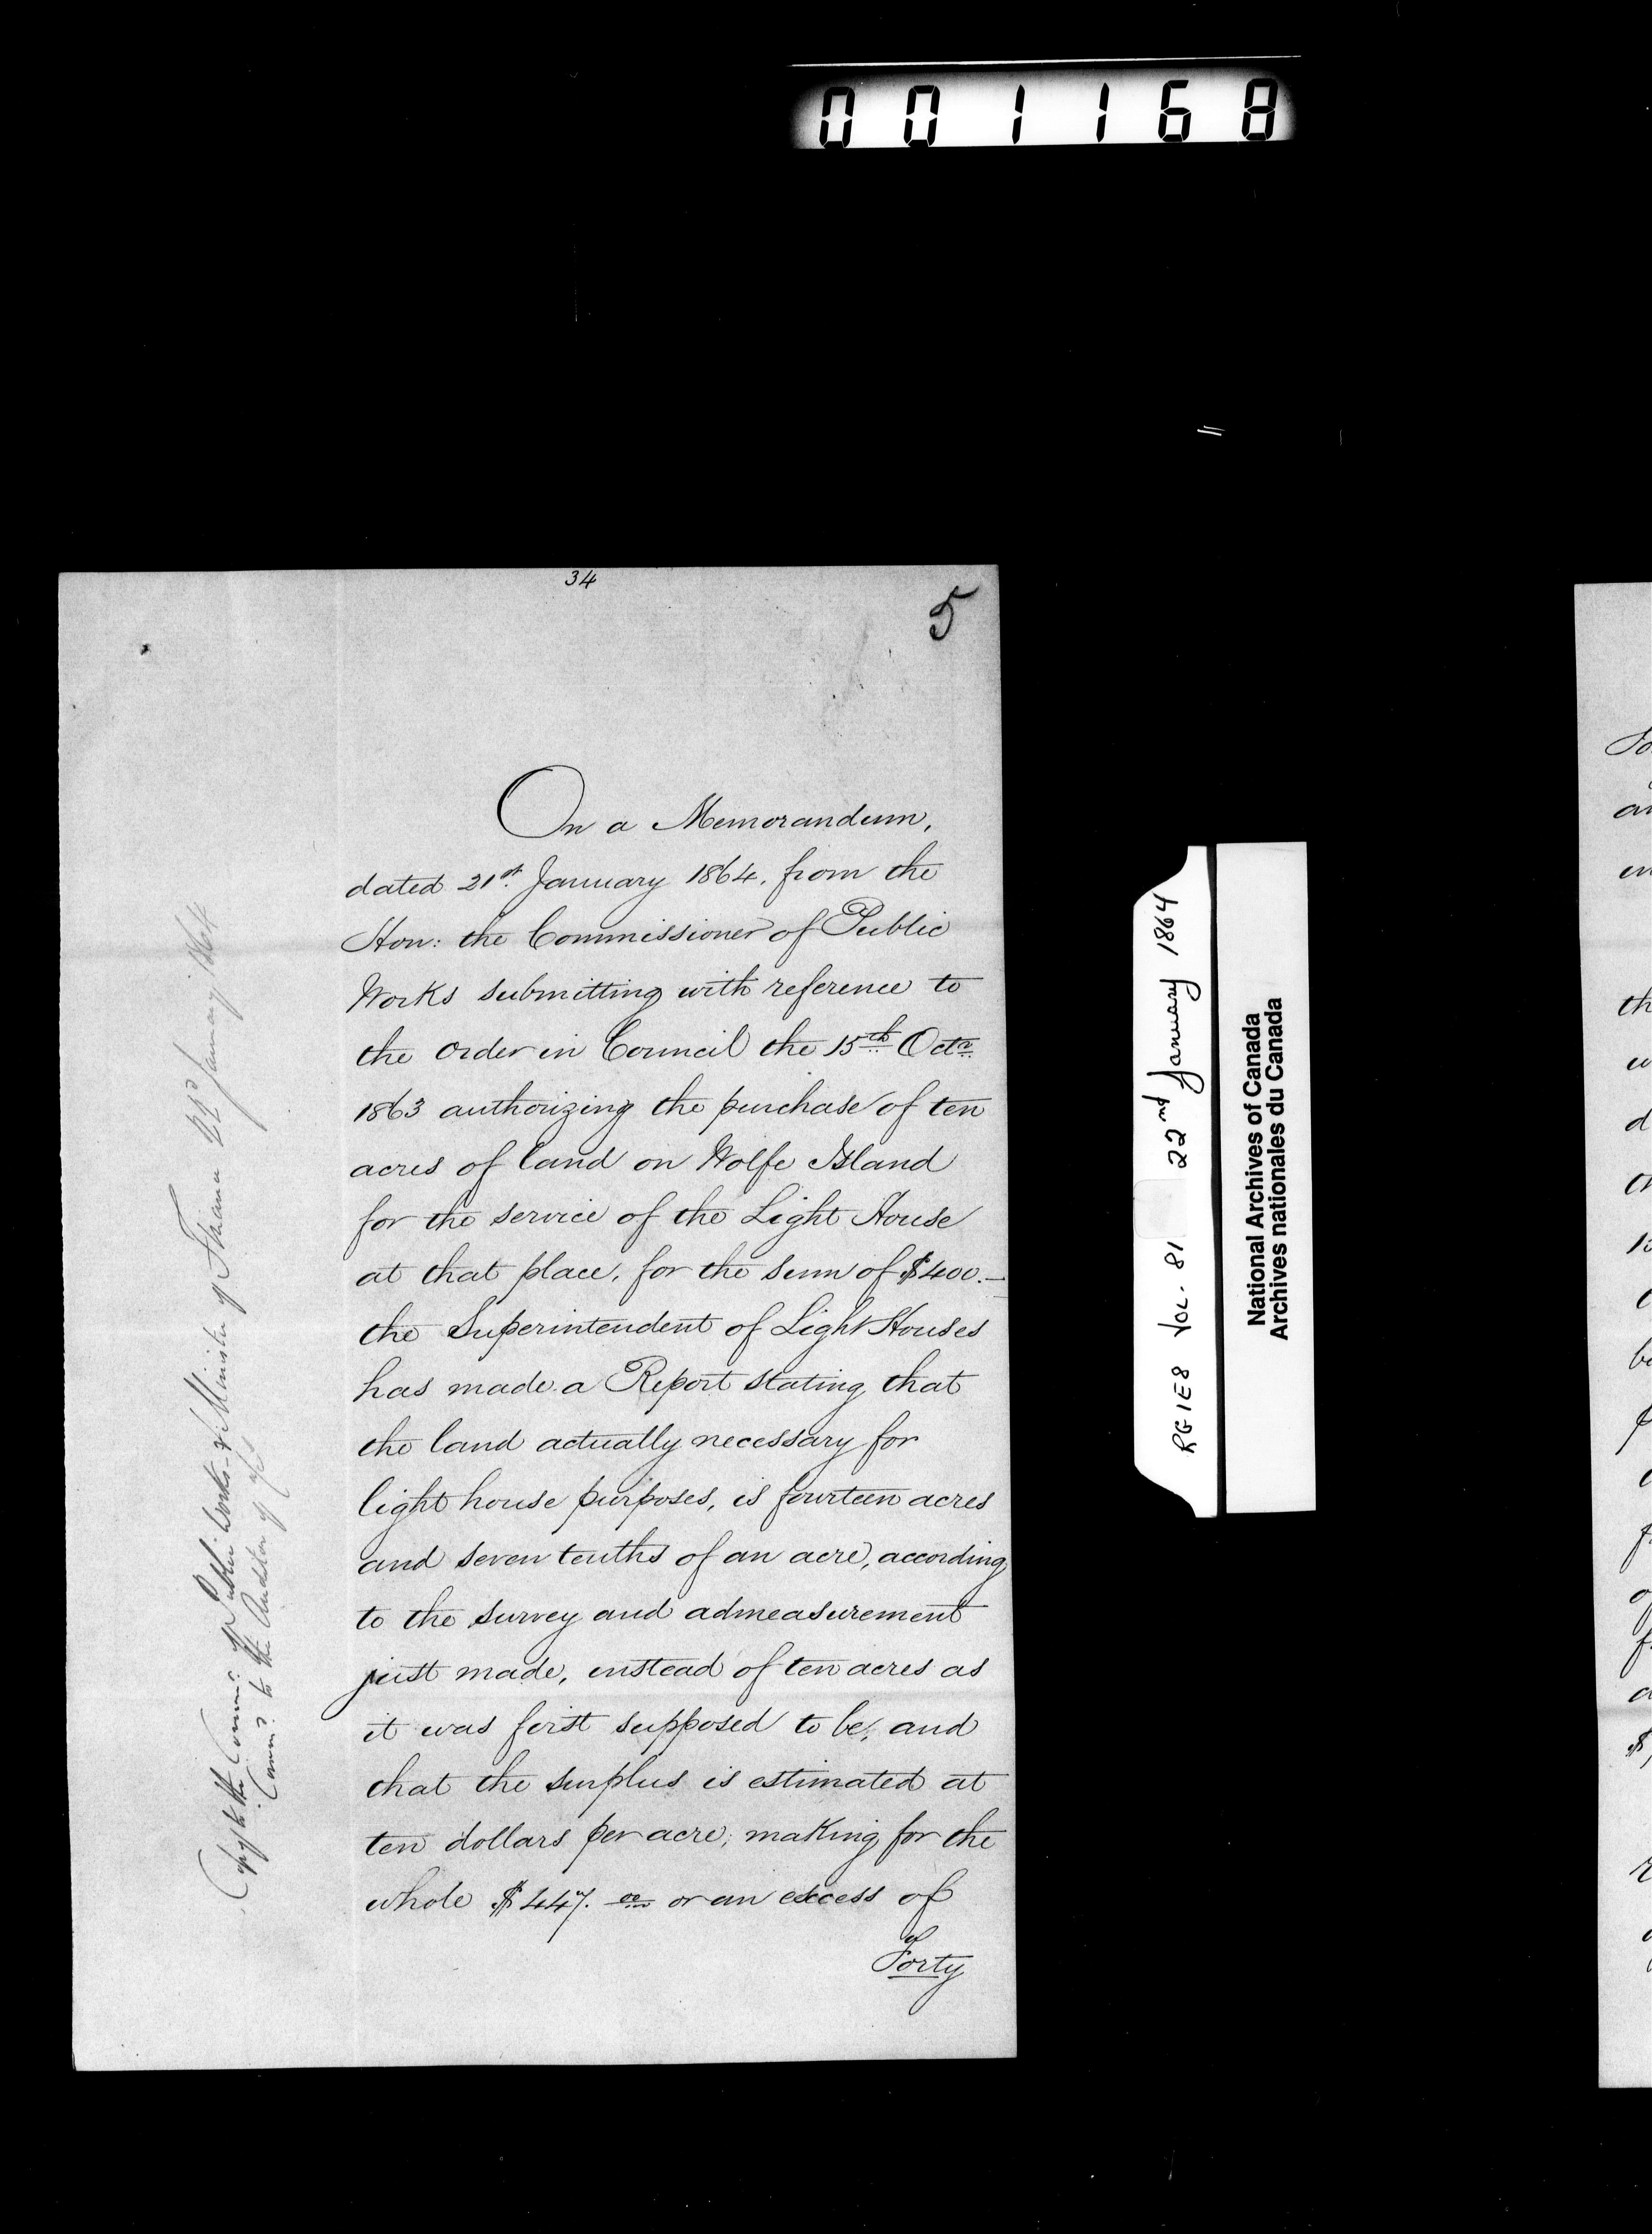 001168
34
5
On a Memorandum,
dated 21st. January 1864, from the
Hon: the Commissioner of Public
Works submitting with reference to
the Order in Council the 15th Octr.
1863 authorizing the purchase of ten
acres of land on Wolfe Island
for the service of the Light House
at that place, for the sum of $400.—
the Superintendent of Light Houses
has made a Report stating that
the land actually necessary for
light house purposes, is fourteen acres
and seven tenths of an acre, according
to the survey and admeasurement
just made, instead of ten acres as
it was first supposed to be, and
that the surplus is estimated at
ten dollars per acre, making for the
whole $447. 00 or an excess of
Forty
Copy to the Commr. of Public Works & Minister of Finance 22d January 1864
to the Auditor of
RG1E8 VOL. 81 22nd January 1864
National Archives of Canada
Archives nationales du Canada